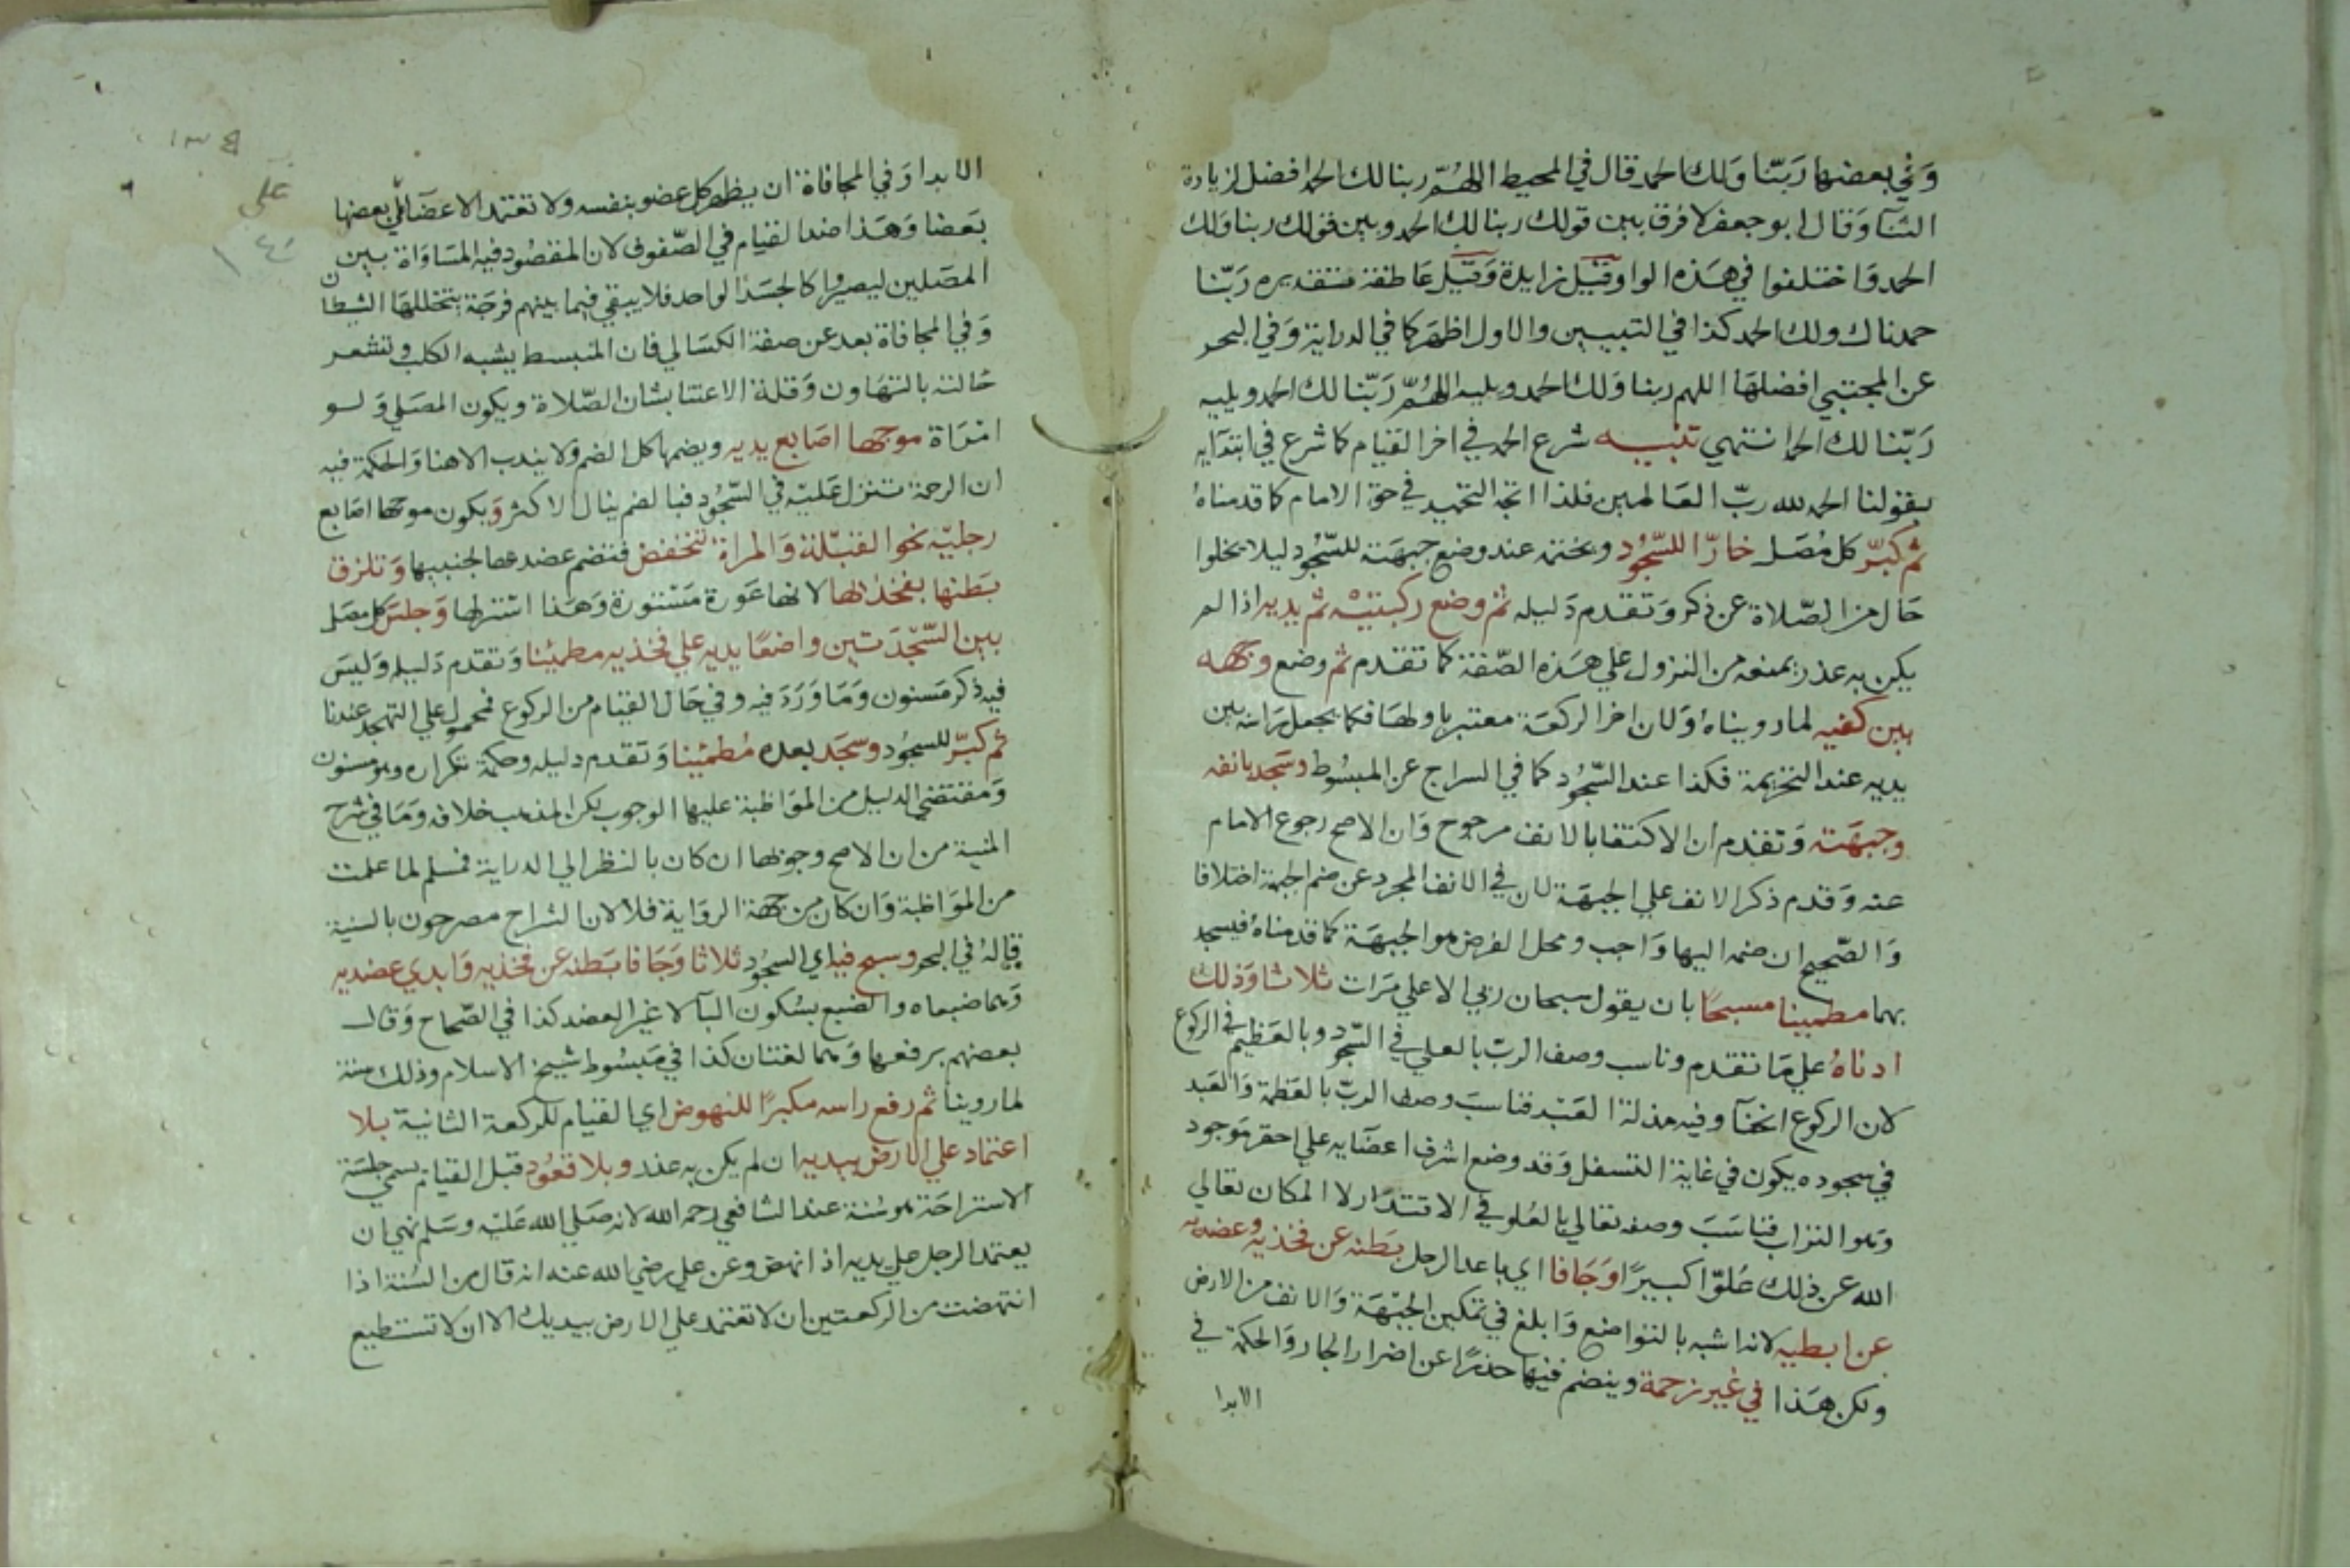 وَفي بعضها رَبّنا وَلك الحمد قال في المحيط اللهُمّ ربنا لك الحمد افضل لزيادة
الثنآ وَقال ابو جعفر لا فرق بين قولك ربنا لك الحمد وبين قولك ربنا ولك
الحمد وَاختلفوا في هَذه الواو قيْل زايدة وَقيْل عَاطفة فتقديره رَبّنا
حمدناك ولك الحمد كذا في التبيين والاول اظهر كما في الدراية وَفي البحر
عن المجتبي افضلهَا اللهم ربنا وَلك الحمد ويليه اللهُمّ رَبّنا لك الحمد ويليه
رَبّنا لك الحمد انتهي تنبيه شرع الحمد في اخر القيام كما شرع في ابتدآيه
بقولنا الحمد لله ربّ العَالمين فلذا اتجه التحميد في حق الامام كما قدمناهُ
ثم كبّر كل مُصَل خارّا للسّجُود ويختمه عند وضع جبهَته للسّجُود ليلا يخلوا
حَال من الصّلاة عن ذكر وَتقدم دَليله ثم وضع ركبتيْه ثم يديه اذا لم
يكن به عذر يمنعه من النزول علي هَذه الصّفة كما تقدم ثم وضع وجهه
بين كفيه لما رويناهُ وَلان اخر الركعَة معتبر باولهَا فكما يجعل رَاسَه بين
يديه عند التحريمة فكذا عند السّجُود كما في السراج عن المبسُوط وسَجد بانفه
وجبهَته وَتقدم ان الاكتفا بالانف مرجوح وَان الاصح رجوع الامام
عنه وَقدم ذكر الانف علي الجبهَة لان في الانف المجرد عن ضم الجبهة اختلافا
وَالصّحيح ان ضمه اليها وَاجب ومحل الفرض هو الجبهَة كما قدمناهُ فيسجد
بهما مطمينا مسبحًا بان يقول سبحان ربي الاعلي مَرات ثلاثا وَذلك
ادناهُ علي مَا تقدم وناسب وصف الربّ بالعلي في السّجود وبالعَظيم في الركوع
لان الركوع انحنآ وفيه مذلة العَبْد فناسبَ وصف الربّ بالعَظمة وَالعَبد
في سجوده يكون في غاية التسفل وَقد وضع اشرف اعضَايه علي احقر مَوجود
وَهو التراب فناسَبَ وصفه تعالي بالعُلو في الاقتدَار لا المكان تعالي
الله عن ذلك عُلوّا كبيرًا وَجَافا اي باعد الرجل بَطنه عن فخذيه وعضديه
عن ابطيه لانه اشبه بالتواضع وَابلغ في تمكين الجبْهَة وَالانف من الارض
ولكن هَذا في غير زحمة وينضم فيها حذرًا عن اضرار الجار وَالحكمة في
الابدا
الابدا وَفي المجافاة ان يظهر كل عضو بنفسه ولا تعتمد الاعضَآ علي بعضها
بَعضا وَهَذا ضد القيام في الصّفوف لان المقصُود فيه المسَاوَاة بين
المصَلين ليصيروا كالجسَد الواحد فلا يبقي فيما بينهم فرجَة يتخللهَا الشيطان
وَفي المجافاة بعد عن صفة الكسَالي فان المنبسط يشبه الكلب وتشعر
حَالته بالتهَاون وَقلة الاعتنا بشان الصّلاة ويكون المصَلي وَلو
امْرَاة موجها اصَابع يديه ويضمها كل الضم ولا يندب الا هنا وَالحكمة فيه
ان الرحمة تنزل عَليْه في السّجُود فبالضم ينال الاكثر وَيكون موجها اصَابع
رجليْه نحو القبْلة وَالمراة تنخفض فتضم عضديها لجنبيها وَتلزق
بَطنها بفخذيها لانها عَورة مَسْتورة وَهَذا استر لها وَجلسَ كل مصَل
بين السّجْدَتين واضعًا يديه علي فخذيه مطمئِنا وَتقدم دَليله وَليسَ
فيه ذكر مَسنون وَمَا وَرَدَ فيه وفي حَال القيام من الركوع فمحمول علي التهجد عندنا
ثم كبّر للسجُود وسجَد بعده مُطمئِنا وَتقدم دليله وحكمة تكراره وهو مسنون
وَمقتضي الدليل من الموَاظبة عليها الوجوب لكن المذهب خلافه وَمَا في شرح
المنية من ان الاصح وجوبها ان كان بالنظر الي الدراية فمسلم لما علمت
من الموَاظبة وَان كان من جهة الروَاية فلا لان الشراح مصرحون بالسنية
قالهُ في البحر وسبح فيه اي السجُود ثلاثا وَجَافا بَطنه عن فخذيه وَابدي عضديه
وَهما ضبعاه والضبع بسُكون البَآ لا غير العضد كذا في الصّحاح وَقال
بعضهم برفعها وَهما لغتان كذا في مَبسُوط شيخ الاسلام وذلك سنة
لما روينا ثم رفع راسه مكبرًا للنهوض اي القيام للركعة الثانية بلا
اعتماد علي الارض بيديه ان لم يكن به عذر وبلا قعُود قبل القيام يسمي جلسَة
الاستراحَة هو سُنة عند الشافعي رحمه الله لانه صَلي الله عَليْه وسَلم نهي ان
يعتمد الرجل علي يديه اذا نهض وعن علي رضي الله عنه انه قال من السُنة اذا
انتهضت من الركعتين ان لا تعتمد علي الارض بيديك الا ان لا تستطيع